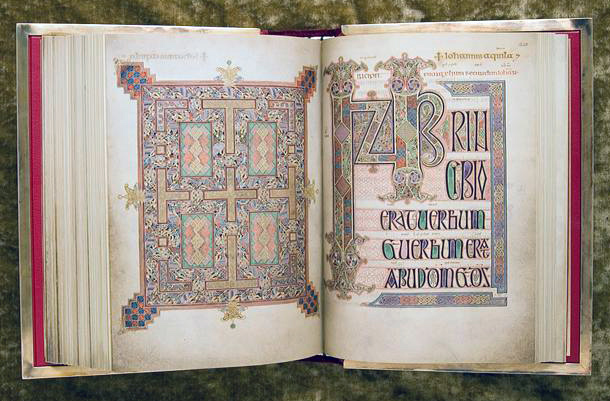 + Iohannis aquila
INCIPIT euangelium secundum iohan
INPRIN
CIPIO
ERAT UERBUM
ET UERBUM ERAT
APUD DM ET DS